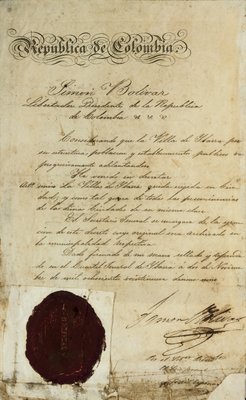 República de Colombia.
Simon Bolivar
Libertador Presidente de la República
de Colombia
Considerando que la Villa de Ibarra por
su estructura, poblacion y establecimientos publicos va
progresivamente adelantandose
He venido en decretar
Art unico La Villa de Ibarra queda erigida en Ciu
dad, y como tal goce de todas las preeminencias
de las demas Ciudades de su misma clase.
El Secretario General se encargara de la
cion de este decreto cuyo original sera archivado en
la municipalidad respectiva.
Dado firmado de mi mano sellado y refrenda
do en el Cuartel General de Ibarra a dos de Noviem
bre de mil ochocientos
Simon Bolivar